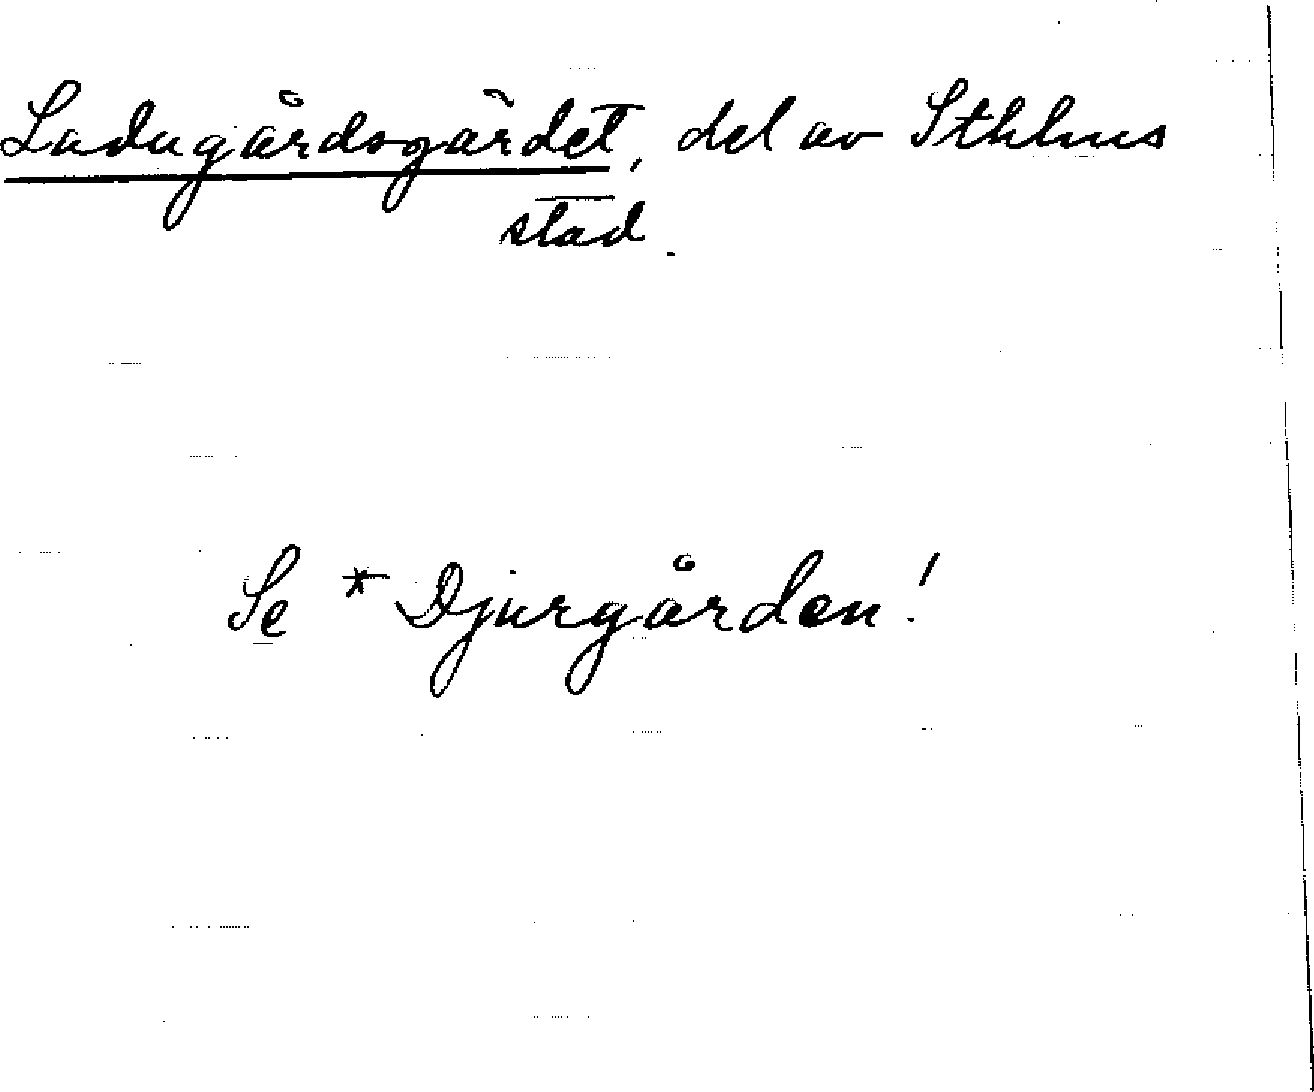 Ladugårdsgärdet, del av Sthlms
stad.
Se *Djurgården!